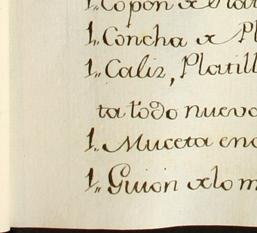 1,, Copon de Plat
1,, Concha de Pl
1,, Caliz, Platill
ta todo nuevo
1,, Muceta enc
1,, Guion de lo m